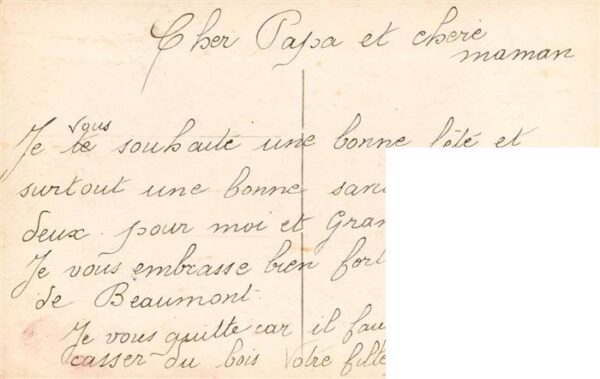 Cher Papa et cherie
maman
vous
Je te souhaite une bonne fête et
surtout une bonne san
deux. pour moi et Gran
Je vous embrasse bien fort
de Beaumont
Je vous quitte car il fau
casser du bois Votre fille